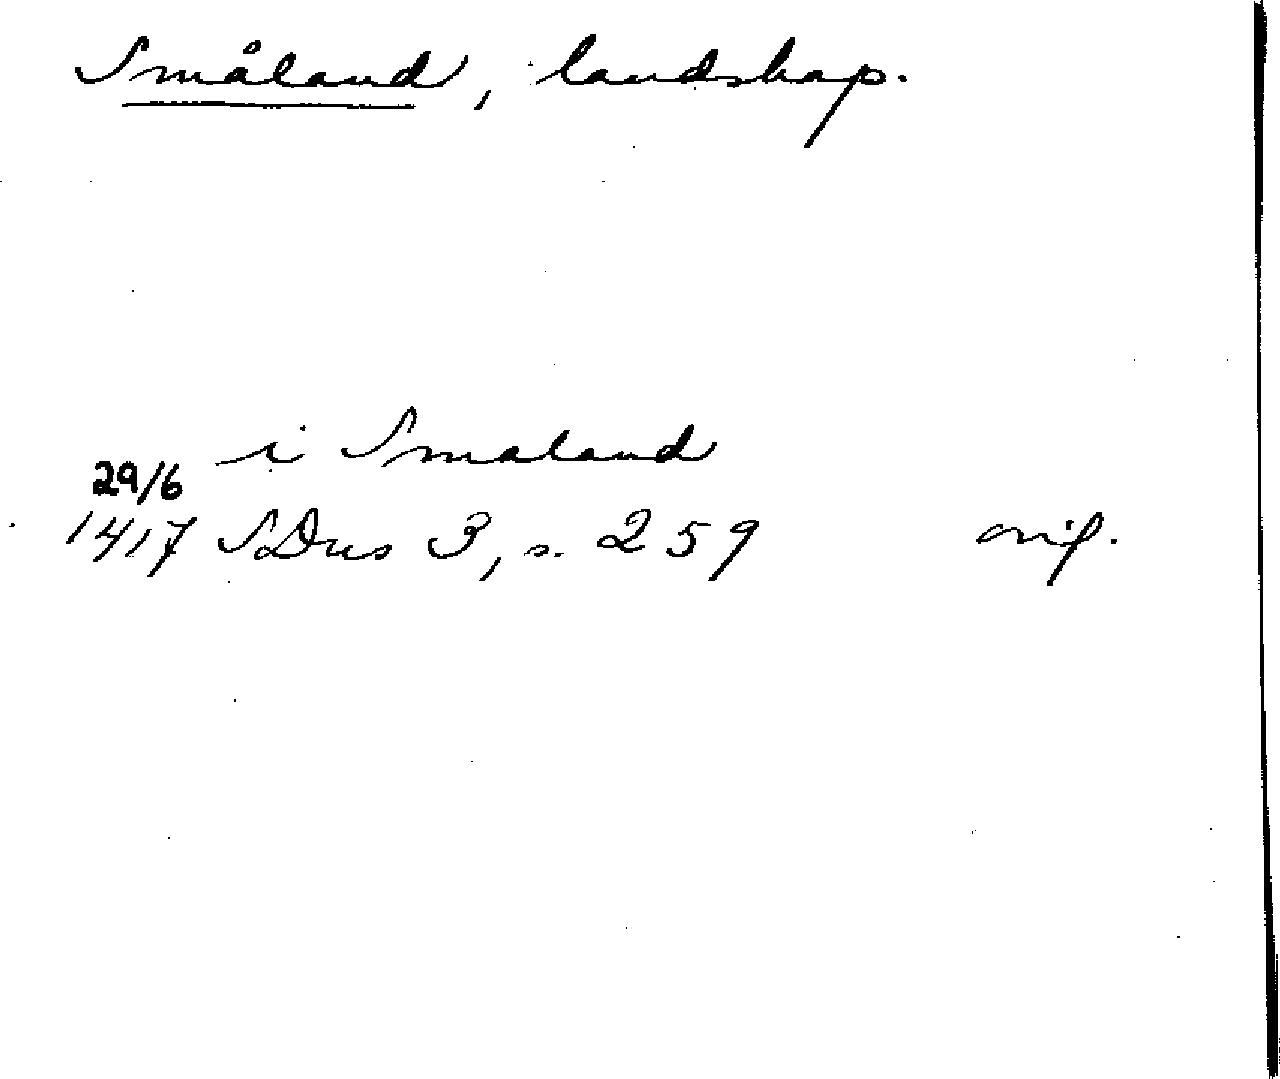 Småland, landskap.
i Smaland
29/6
1417 SDns 3, s. 259 orig.